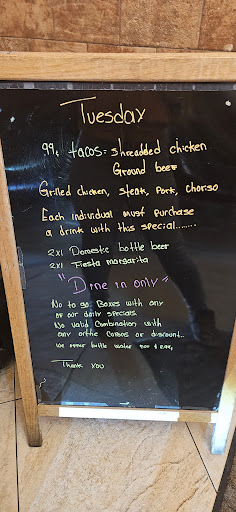 Tuesday
99¢ tacos: shreadded chicken
Ground beef
Grilled chicken, steak, Pork, choriso
Each individual must purchase
a drink with this special.......
2x1 Domestic bottle beer
2x1 Fiesta margarita
"Dine in only"
No to go Boxes with any
of our daily specials.
No valid Combination with
any other Copons or discount..
We offer bottle water for $ 2.99,
Thank you